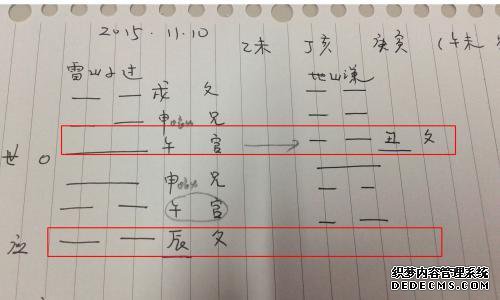 2015.11.10 乙未 丁亥 庚寅 (午未
雷山小过 地山谦
戌 父
申 兄
世 O 午 官 → 丑 父
申 兄
午 官
应 辰 父
织梦内容管理系统
DEDECMS.COM